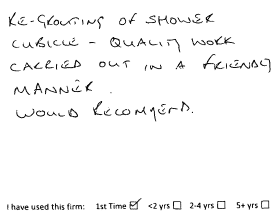 RE-GROUTING OF SHOWER
CUBICLE - QUALITY WORK
CARRIED OUT IN A FRIENDLY
MANNER.
WOULD RECOMMEND.
I have used this firm: 1st Time ☑ <2 yrs ☐ 2-4 yrs ☐ 5+ yrs ☐